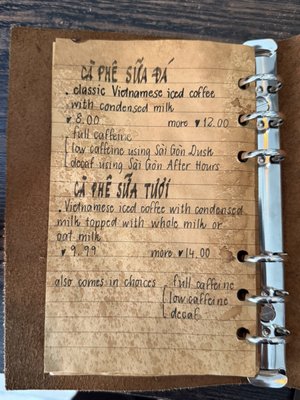 CÀ PHÊ SỮA ĐÁ
. classic Vietnamese iced coffee
with condensed milk
♥ 8.00 more ♥ 12.00
full caffeine
low caffeine using Sài Gòn Dusk
decaf using Sài Gòn After Hours
CÀ PHÊ SỮA TƯƠI
. Vietnamese iced coffee with condensed
milk topped with whole milk or
oat milk
♥ 9.99 more ♥ 14.00
also comes in choices full caffeine
low caffeine
decaf